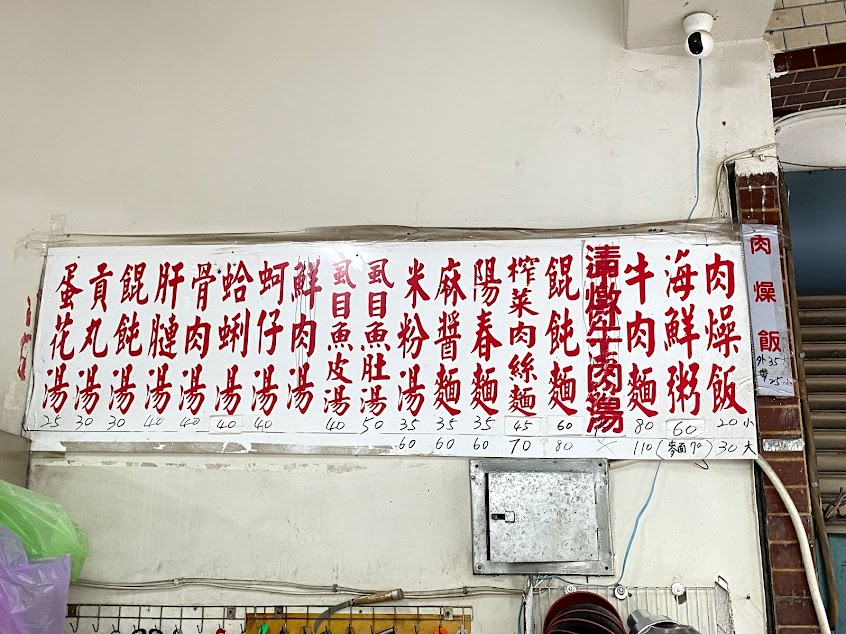 肉燥飯
外35大
帶25小
肉燥飯 20小 30大
海鮮粥 60 (麵70)
牛肉麵 80 110
清燉牛肉湯 ×
餛飩麵 60 80
榨菜肉絲麵 45 70
陽春麵 35 60
麻醬麵 35 60
米粉湯 35 60
虱目魚肚湯 50
虱目魚皮湯 40
鮮肉湯
蚵仔湯 40
蛤蜊湯 40
骨肉湯 40
肝湯 40
餛飩湯 30
貢丸湯 30
蛋花湯 25